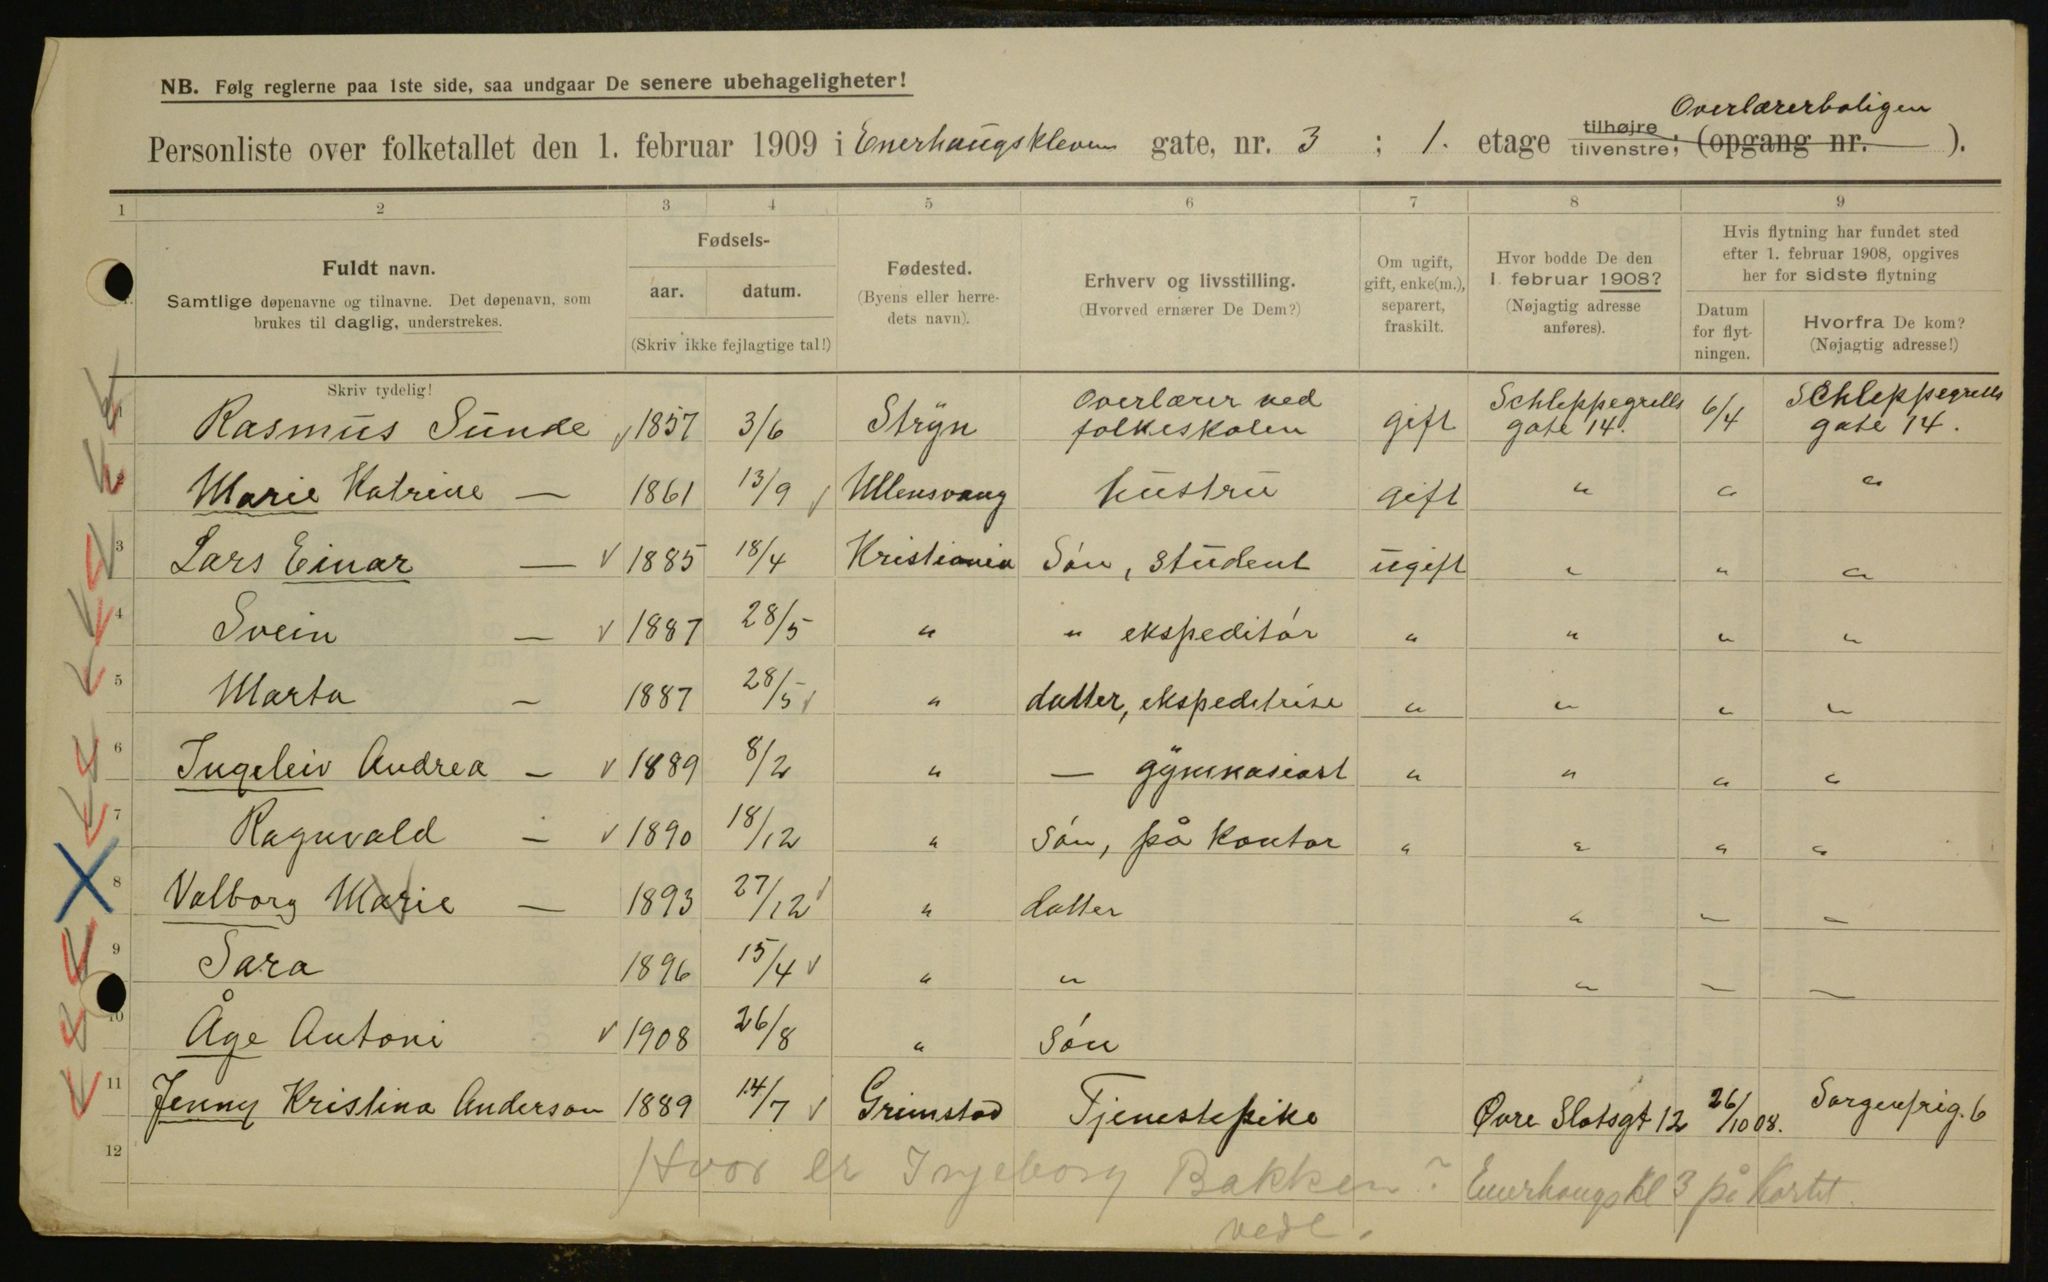 NB. Følg reglerne paa 1ste side, saa undgaar De senere ubehageligheter!
Overlærerboligen
Personliste over folketallet den 1. februar 1909 i Enerhaugskleven gate, nr. 3 ; 1. etage tilhøjre tilvenstre; (opgang nr. ).
1 2 3 4 5 6 7 8 9
Fuldt navn.
Samtlige døpenavne og tilnavne. Det døpenavn, som
brukes til daglig, understrekes.
Fødsels-
aar. datum.
(Skriv ikke fejlagtige tal!)
Fødested.
(Byens eller herre-
dets navn).
Erhverv og livsstilling.
(Hvorved ernærer De Dem?)
Om ugift,
gift, enke(m.),
separert,
fraskilt.
Hvor bodde De den
1. februar 1908?
(Nøjagtig adresse
anføres).
Hvis flytning har fundet sted
efter 1. februar 1908, opgives
her for sidste flytning
Datum
for flyt-
ningen.
Hvorfra De kom?
(Nøjagtig adresse!)
Skriv tydelig!
1 Rasmus Sunde 1857 3/6 Stryn Overlærer ved folkeskolen gift Schleppegrells gate 14. 6/4 Schleppegrells gate 14.
2 Marie Katrine — 1861 13/9 Ullensvang hustru gift " " "
3 Lars Einar — 1885 18/4 Kristiania Søn, student ugift " " "
4 Svein — 1887 28/5 " " ekspeditór " " " "
5 Marta — 1887 28/5 " datter, ekspeditrise " " " "
6 Ingeleiv Andrea — 1889 8/2 " — gymnasiast " " " "
7 Ragnvald — 1890 18/12 " Søn, på kontor " " " "
8 Valborg Marie — 1893 27/12 " datter " — —
9 Sara 1896 15/4 " " " — —
10 Åge Antoni 1908 26/8 " Søn
11 Jenny Kristina Anderson 1889 14/7 Grimstad Tjenestepike Øvre Slotsgt 12 26/10 08. Sorgenfrig. 6
12 Hvor er Ingeborg Bakken? Enerhaugskl 3 på kortet.
vedl.